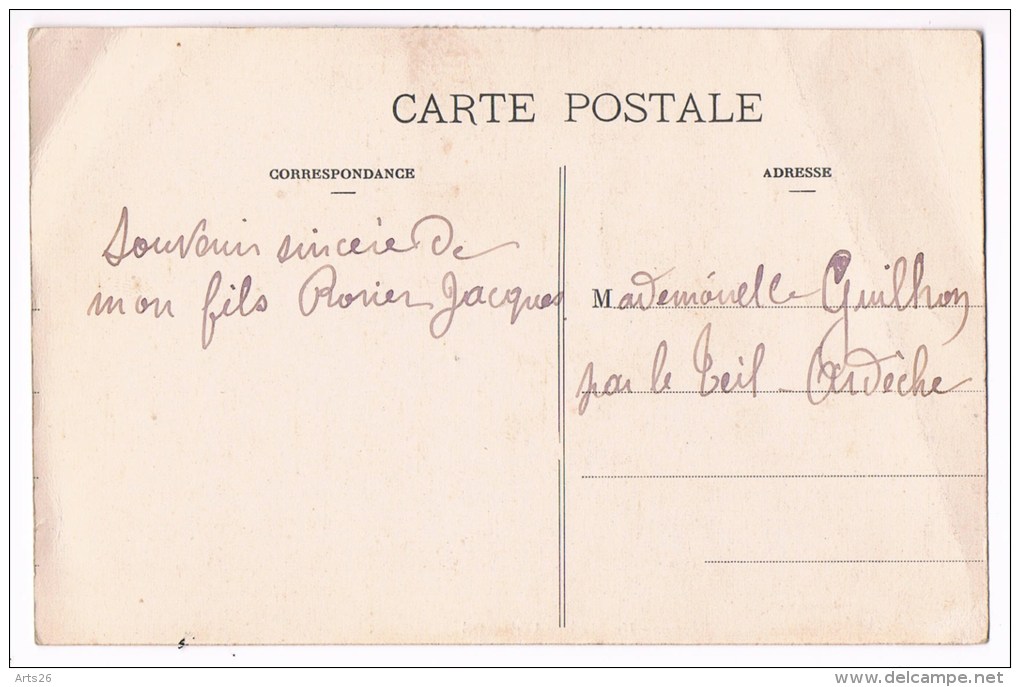 CARTE POSTALE
CORRESPONDANCE
Souvenir sincère de
mon fils Rosier Jacques
ADRESSE
Mademoiselle Guilhon
par le Teil - Ardèche
Arts26
www.delcampe.net